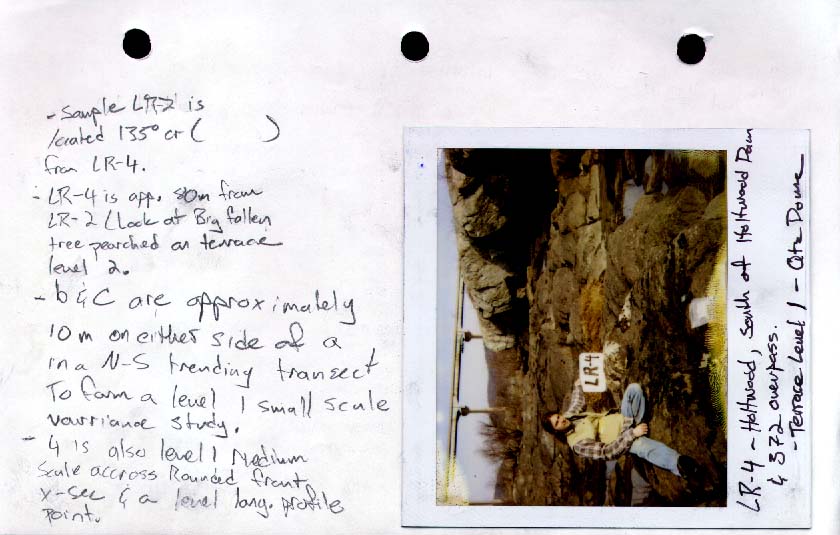 - Sample LR-2 is
located 135° or (          )
from LR-4.
- LR-4 is app. 50m from
LR-2 (Look at Big fallen
tree pearched on terrace
level 2.
- b & C are approximately
10 m on either side of a
in a N-S trending transect
To form a level 1 small scale
varriance study.
- 4 is also level 1 Medium
Scale accross Rounded front
x-sec & a level long. profile
point.
LR-4
LR-4 - Holtwood, South of Holtwood Dam
& 372 overpass.
- Terrace Level 1 - Qtz Dome